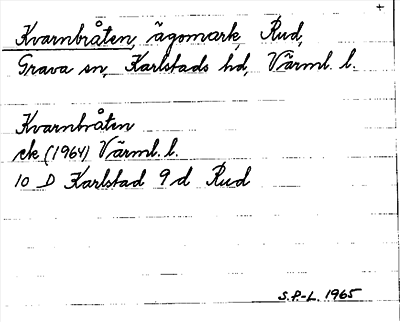 +
Kvarnbråten, ägomark, Rud,
Grava sn, Karlstads hd, Värml. l.
Kvarnbråten
ek (1964) Värml. l.
10 D Karlstad 9 d Rud
S.P.-L. 1965